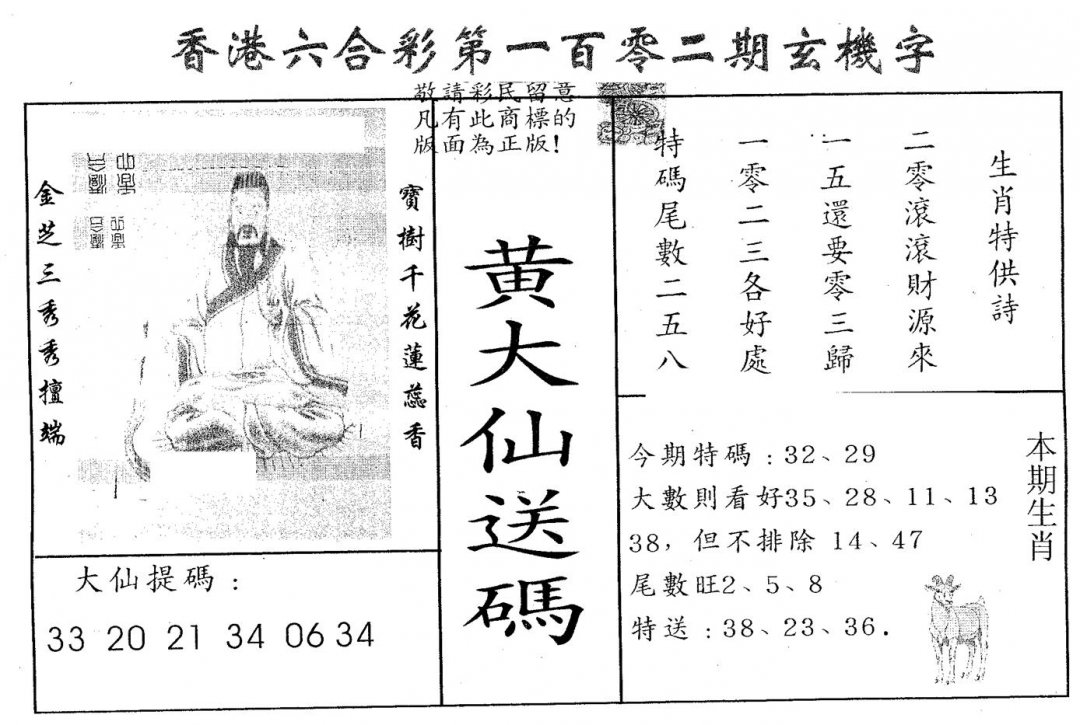 香港六合彩第一百零二期玄機字
敬請彩民留意
凡有此商標的
版面為正版!
寶樹千花蓮蕊香
金芝三秀秀擅端
大仙提碼：
33 20 21 34 06 34
黃大仙送碼
生肖特供詩
二零滾滾財源來
一五還要零三歸
一零二三各好處
特碼尾數二五八
本期生肖
今期特碼：32、29
大數則看好35、28、11、13
38，但不排除 14、47
尾數旺2、5、8
特送：38、23、36.